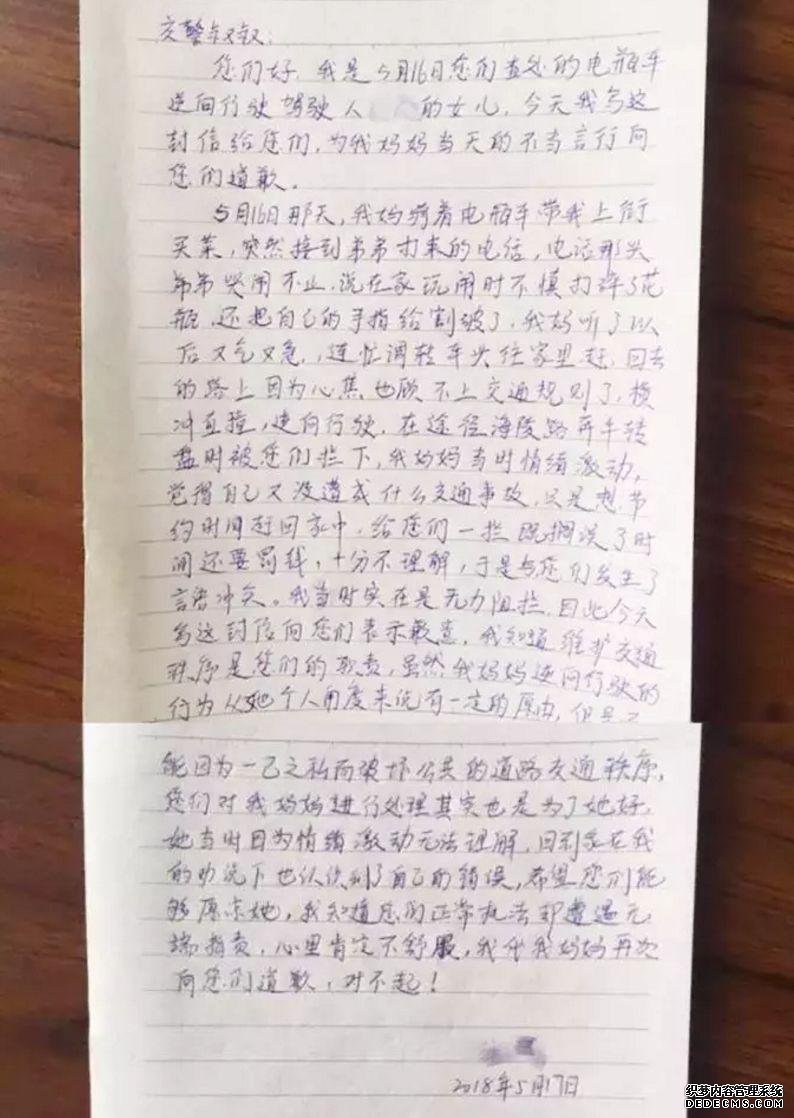 交警叔叔：
您们好，我是5月16日您们查处的电瓶车
逆向行驶驾驶人 的女儿，今天我写这
封信给您们，为我妈妈当天的不当言行向
您们道歉。
5月16日那天，我妈骑着电瓶车带我上街
买菜，突然接到弟弟打来的电话，电话那头
弟弟哭闹不止，说在家玩闹时不慎打碎了花
瓶，还把自己的手指给割破了，我妈听了以
后又气又急，连忙调转车头往家里赶，回去
的路上因为心焦也顾不上交通规则了，横
冲直撞，逆向行驶，在途径海陵路 牛转
盘时被您们拦下，我妈妈当时情绪激动，
觉得自己又没造成什么交通事故，只是想节
约时间赶回家中，给您们一拦既搁误了时
间还要罚钱，十分不理解，于是与您们发生了
言语冲突。我当时实在是无力阻拦，因此今天
写这封信向您们表示歉意，我知道维护交通
秩序是您们的职责，虽然我妈妈逆向行驶的
行为从她个人角度来说有一定的原由，但是不
能因为一己之私而破坏公共的道路交通秩序，
您们对我妈妈进行处理其实也是为了她好，
她当时因为情绪激动无法理解，回到家在我
的劝说下也认识到了自己的错误，希望您们能
够原谅她，我知道您们正常执法却遭遇无
端指责，心里肯定不舒服，我代我妈妈再次
向您们道歉，对不起！
2018年5月17日
织梦内容管理系统
DEDECMS.COM